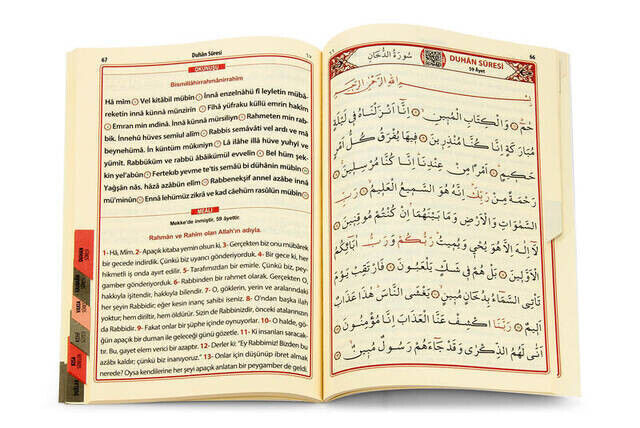 67
Duhân Sûresi
OKUNUŞU
Bismillâhirrahmânirrahîm
Hâ mîm ① Vel kitâbil mübîn ② İnnâ enzelnâhü fî leyletin mübâ-
raketin innâ künnâ münzirîn ③ Fîhâ yüfraku küllü emrin hakîm
④ Emran min ındinâ. İnnâ künnâ mürsiliyn ⑤ Rahmeten min rab-
bik. İnnehû hüves semiul alîm ⑥ Rabbis semâvâti vel ardı ve mâ
beynehümâ. İn küntüm mûkıniyn ⑦ Lâ ilâhe illâ hüve yuhyî ve
yümît. Rabbüküm ve rabbü âbâikümül evvelîn ⑧ Bel hüm şek-
kin yel'abûn ⑨ Fertekıb yevme te'tis semâü bi dühânin mübîn ⑩
Yağşân nâs, hâzâ azâbün elîm ⑪ Rabbenekşif annel azâbe innâ
mü'minûn ⑫ Ennâ lehümüz zikrâ ve kad câehüm rasûlün mübîn ⑬
MEÂLİ
Mekke'de inmiştir. 59 âyettir.
Rahmân ve Rahîm olan Allah'ın adıyla.
1- Hâ, Mîm. 2- Apaçık kitaba yemin olsun ki, 3- Gerçekten biz onu mübârek
bir gecede indirdik. Çünkü biz uyarıcı gönderiyorduk. 4- Bir gece ki, her
hikmetli iş onda ayırt edilir. 5- Tarafımızdan bir emirle. Çünkü biz, peygam-
berler gönderiyorduk. 6- Rabbinden bir rahmet olarak. Gerçekten O,
hakkıyla işitendir, hakkıyla bilendir. 7- O, göklerin, yerin ve aralarındaki
her şeyin Rabbidir; eğer kesin inanç sahibi iseniz. 8- O'ndan başka ilah
yoktur; hem diriltir, hem öldürür. Sizin de Rabbinizdir, önceki atalarınızın
da Rabbidir. 9- Fakat onlar bir şüphe içinde oynuyorlar. 10- O halde, gö-
ğün apaçık bir duman ile geleceği günü gözetle. 11- Ki insanları saracak-
tır. Bu, gayet elem verici bir azaptır. 12- Derler ki: "Ey Rabbimiz! Bizden bu
azâbı kaldır; çünkü biz inanıyoruz." 13- Onlar için düşünüp ibret almak
nerede? Oysa kendilerine her şeyi apaçık anlatan bir peygamber de geldi.
66
سُورَةُ الدُّخَانِ
DUHÂN SÛRESİ
59 Âyet
بِسْمِ اللهِ الرَّحْمٰنِ الرَّحِيمِ
حٰمٓ ۞ وَالْكِتَابِ الْمُبِينِ ۞ اِنَّا اَنْزَلْنَاهُ فِى لَيْلَةٍ
مُبَارَكَةٍ اِنَّا كُنَّا مُنْذِرِينَ ۞ فِيهَا يُفْرَقُ كُلُّ اَمْرٍ
حَكِيمٍ ۞ اَمْرًا مِنْ عِنْدِنَا اِنَّا كُنَّا مُرْسِلِينَ ۞
رَحْمَةً مِنْ رَبِّكَ اِنَّهُ هُوَ السَّمِيعُ الْعَلِيمُ ۞ رَبِّ
السَّمٰوَاتِ وَالْاَرْضِ وَمَا بَيْنَهُمَا اِنْ كُنْتُمْ مُوقِنِينَ ۞
لَا اِلٰهَ اِلَّا هُوَ يُحْيِى وَيُمِيتُ رَبُّكُمْ وَرَبُّ اٰبَائِكُمُ
الْاَوَّلِينَ ۞ بَلْ هُمْ فِى شَكٍّ يَلْعَبُونَ ۞ فَارْتَقِبْ يَوْمَ
تَاْتِى السَّمَاءُ بِدُخَانٍ مُبِينٍ ۞ يَغْشَى النَّاسَ هٰذَا عَذَابٌ
اَلِيمٌ ۞ رَبَّنَا اكْشِفْ عَنَّا الْعَذَابَ اِنَّا مُؤْمِنُونَ ۞
اَنّٰى لَهُمُ الذِّكْرٰى وَقَدْ جَاءَهُمْ رَسُولٌ مُبِينٌ ۞